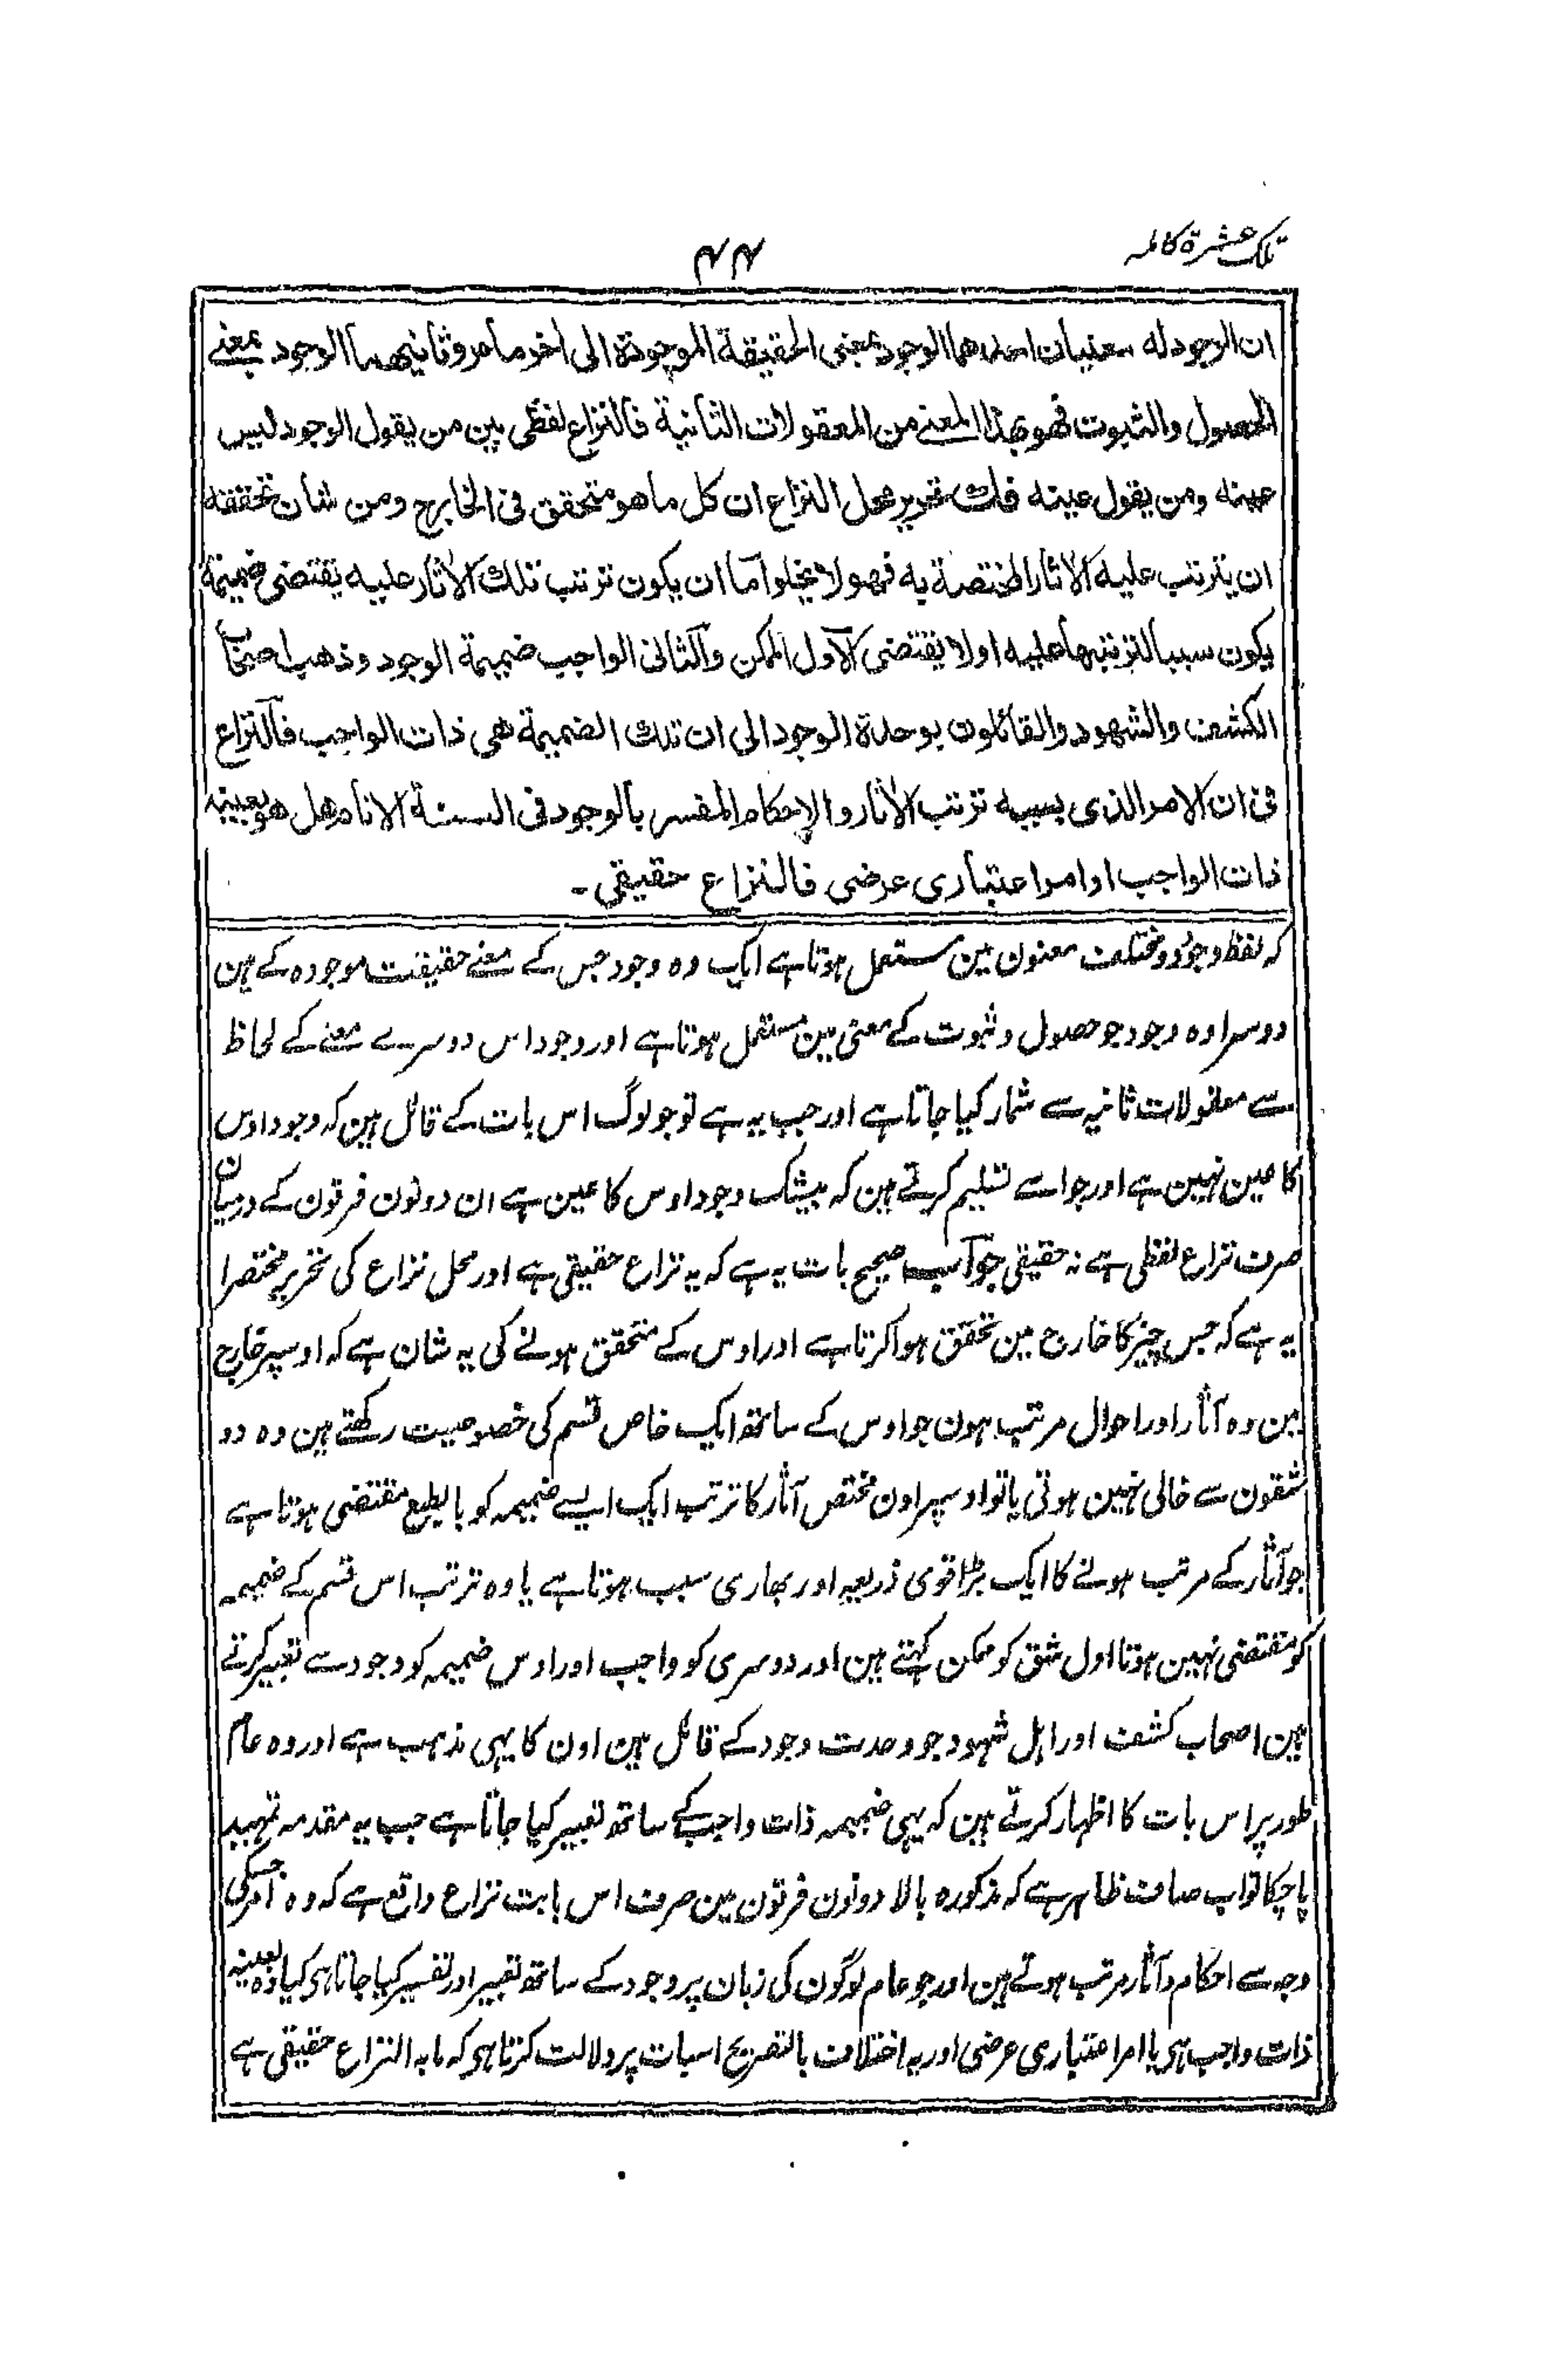 تلک عشرة کاملہ
۴۴
ان الوجود له معنيان احدهما الوجود بمعنى الحقيقة الموجودة الى اخر ما مر وثانيهما الوجود بمعنے
الحصول والثبوت فهو بهذا المعنے من المعقولات الثانية فالنزاع لفظى بين من يقول الوجود ليس
عينه ومن يقول عينه قلت تحرير محل النزاع ان كل ما هو متحقق فى الخارج ومن شان تحققه
ان يترتب عليه الاثار المختصة به فهو لا يخلوا ما ان يكون ترتب تلك الاثار عليه يقتضى ضميمة
يكون سببا لترتبها عليه اولا يقتضى الاول الممكن والثانى الواجب ضميمة الوجود وذهب اصحاب
الكشف والشهود والقائلون بوحدة الوجود الى ان تلك الضميمة هى ذات الواجب فالنزاع
فى ان الامر الذى بسببه ترتب الاثار والاحكام المفسر بالوجود فى السنة الانام هل هو بعينه
ذات الواجب او امر اعتبارى عرضى فالنزاع حقيقى۔
کہ لفظ وجود دو مختلف معنون مین مستعمل ہوتا ہے ایک وہ وجود جس کے معنے حقیقت موجودہ کے ہین
دوسرا وہ وجود جو حصول و ثبوت کے معنی مین مستعمل ہوتا ہے اور وجود اس دوسرے معنے کے لحاظ
سے معقولات ثانیہ سے شمار کیا جاتا ہے اور جب یہ ہے تو جو لوگ اس بات کے قائل ہین کہ وجود اوس
کا عین نہین ہے اور جو اسے تسلیم کرتے ہین کہ بیشک وجود اوس کا عین ہے ان دونون فرقون کے درمیان
صرف نزاع لفظی ہے نہ حقیقی جواب صحیح بات یہ ہے کہ یہ نزاع حقیقی ہے اور محل نزاع کی تحریر مختصرا
یہ ہے کہ جس چیز کا خارج مین تحقق ہوا کرتا ہے اور اوس کے متحقق ہونے کی یہ شان ہے کہ اوسپر خارج
مین وہ آثار اور احوال مرتب ہون جو اوس کے ساتھ ایک خاص قسم کی خصوصیت رکھتے ہین وہ دو
شقون سے خالی نہین ہوتی یا تو اوسپر اون مختص آثار کا ترتب ایک ایسے ضمیمہ کو بالطبع مقتضی ہوتا ہے
جو آثار کے مرتب ہونے کا ایک بڑا قوی ذریعہ اور بھاری سبب ہوتا ہے یا وہ ترتب اس قسم کے ضمیمہ
کو مقتضی نہین ہوتا اول شق کو ممکن کہتے ہین اور دوسری کو واجب اور اوس ضمیمہ کو وجود سے تعبیر کرتے
ہین اصحاب کشف اور اہل شہود جو وحدت وجود کے قائل ہین اون کا یہی مذہب ہے اور وہ عام
طور پر اس بات کا اظہار کرتے ہین کہ یہی ضمیمہ ذات واجب کے ساتھ تعبیر کیا جاتا ہے جب یہ مقدمہ تمہید
پا چکا تو اب صاف ظاہر ہے کہ مذکورہ بالا دونون فرقون مین صرف اس بابت نزاع واقع ہے کہ وہ امر جسکی
وجہ سے احکام و آثار مرتب ہوتے ہین اور جو عام لوگون کی زبان پر وجود کے ساتھ تعبیر اور تفسیر کیا جاتا ہی کیا وہ بعینہ
ذات واجب ہی یا امر اعتباری عرضی اور یہ اختلاف بالتصریح اسبات پر دلالت کرتا ہی کہ ما بہ النزاع حقیقی ہے